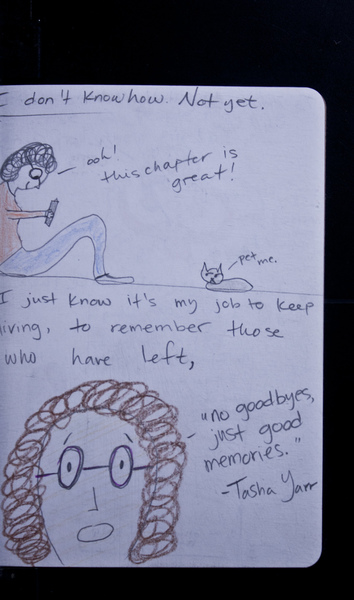 I don't know how. Not yet.
ooh!
this chapter is
great!
pet me.
I just know it's my job to keep
living, to remember those
who have left,
"no goodbyes,
just good
memories."
-Tasha Yarr